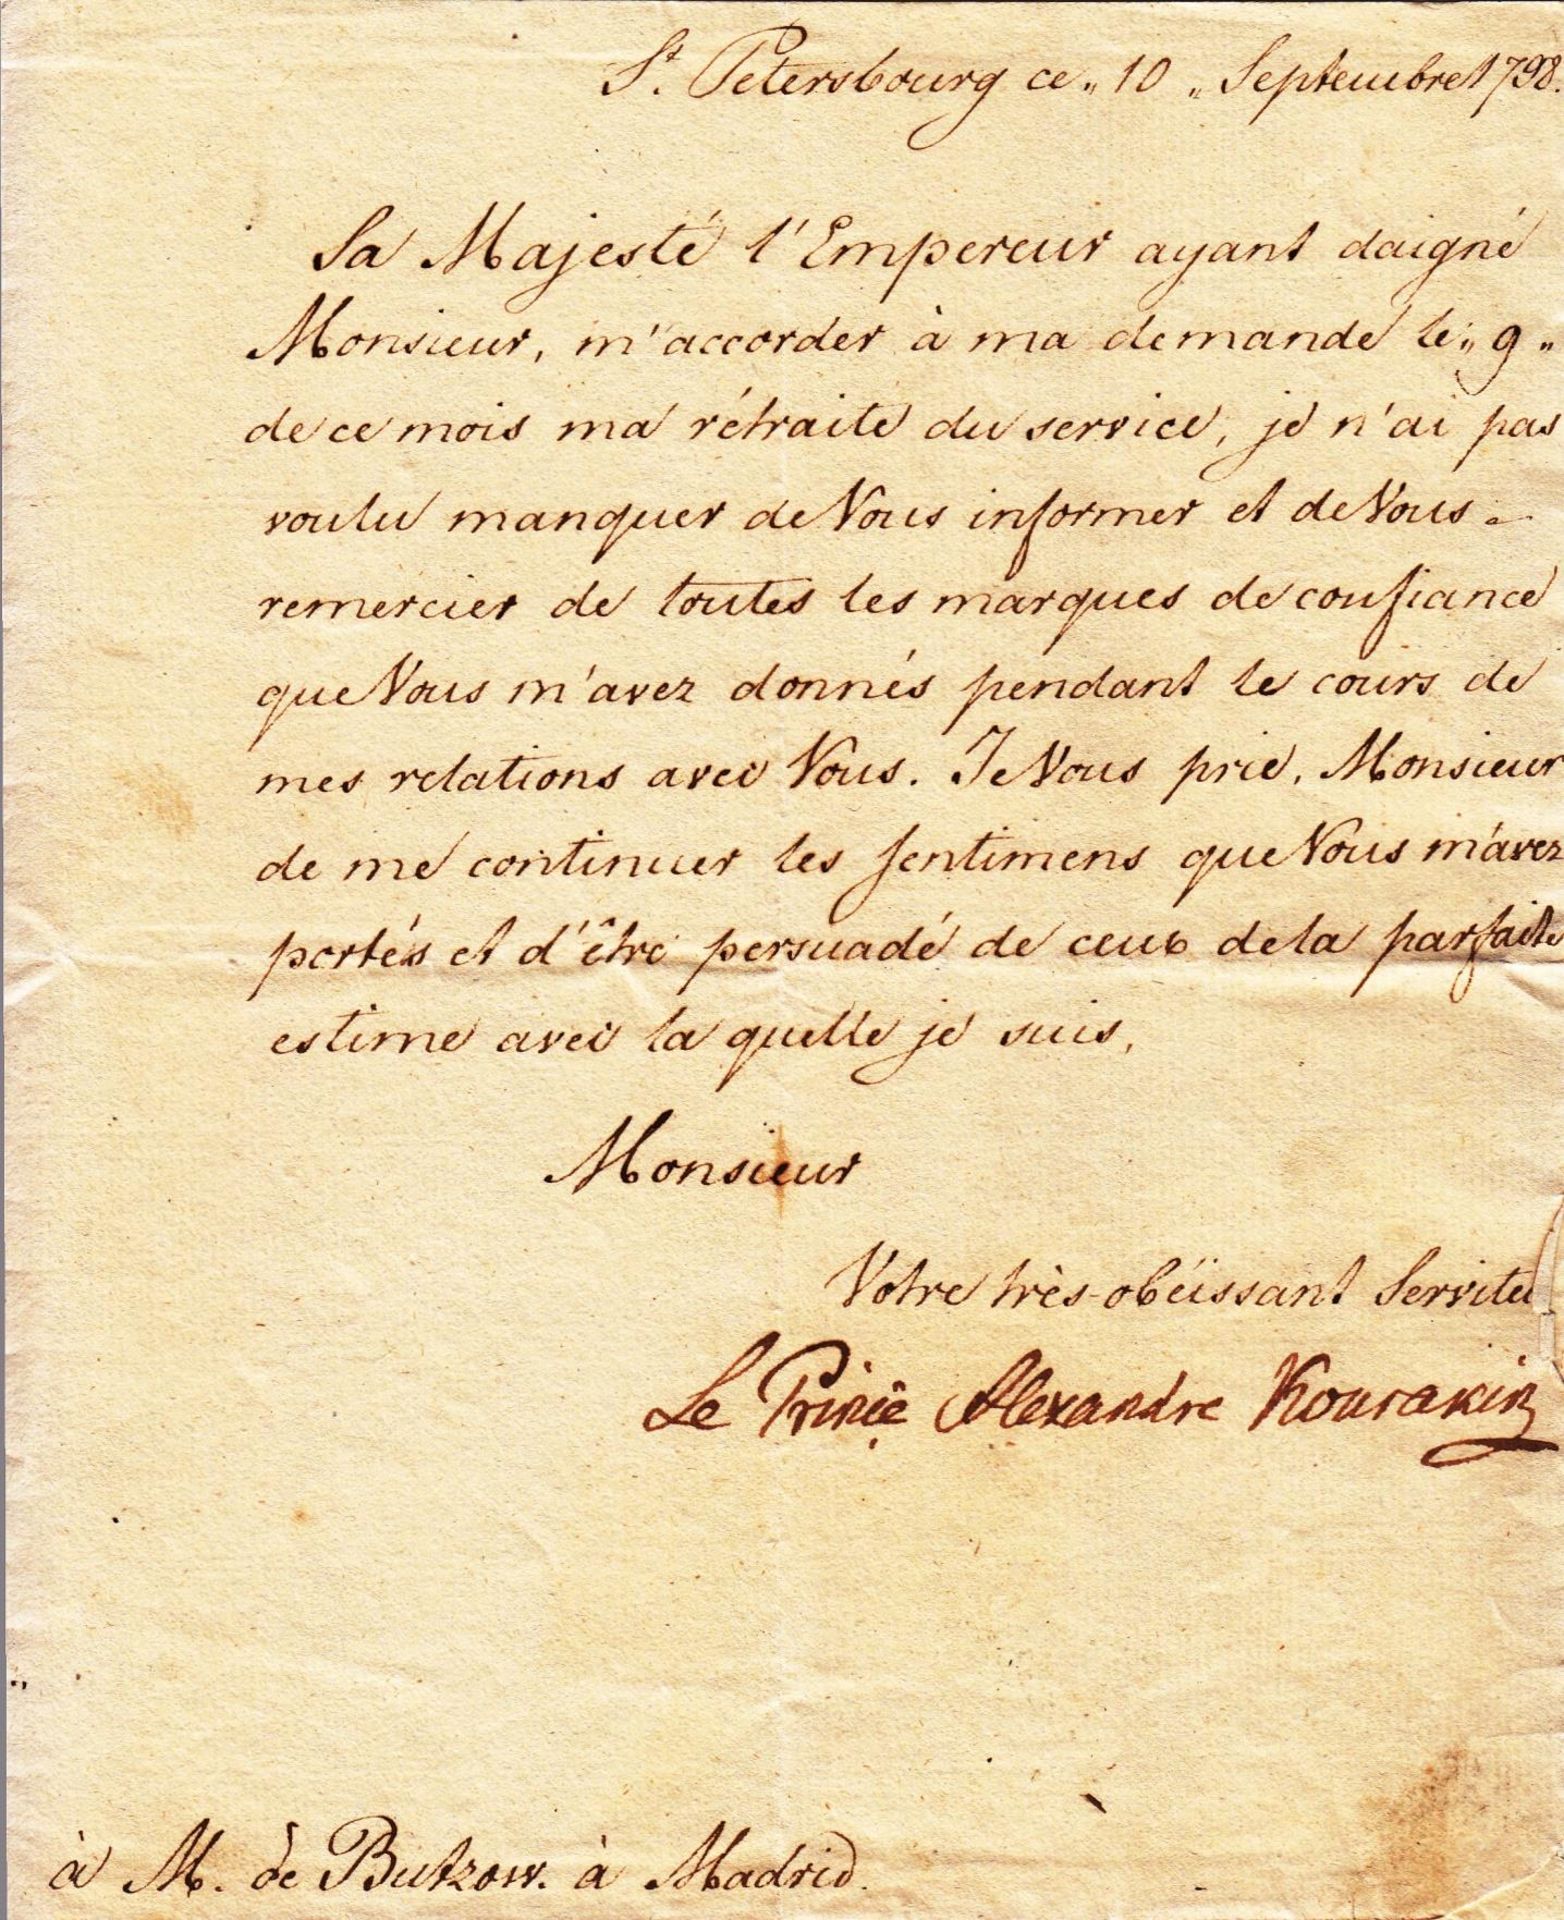 St. Petersbourg ce „ 10 „ Septembre 1798.
Sa Majesté l'Empereur ayant daigné
Monsieur, m'accorder à ma demande le „ 9 „
de ce mois ma rétraite du service, je n'ai pas
voulu manquer de Vous informer et de Vous
remercier de toutes les marques de confiance
que Vous m'avez donnés pendant le cours de
mes relations avec Vous. Je Vous prie, Monsieur
de me continuer les sentimens que Vous m'avez
portés et d'être persuadé de ceux de la parfaite
estime avec la quelle je suis,
Monsieur
Votre très-obéissant Serviteu
Le Prince Alexandre Kourakin
à M. de Butzow. à Madrid.